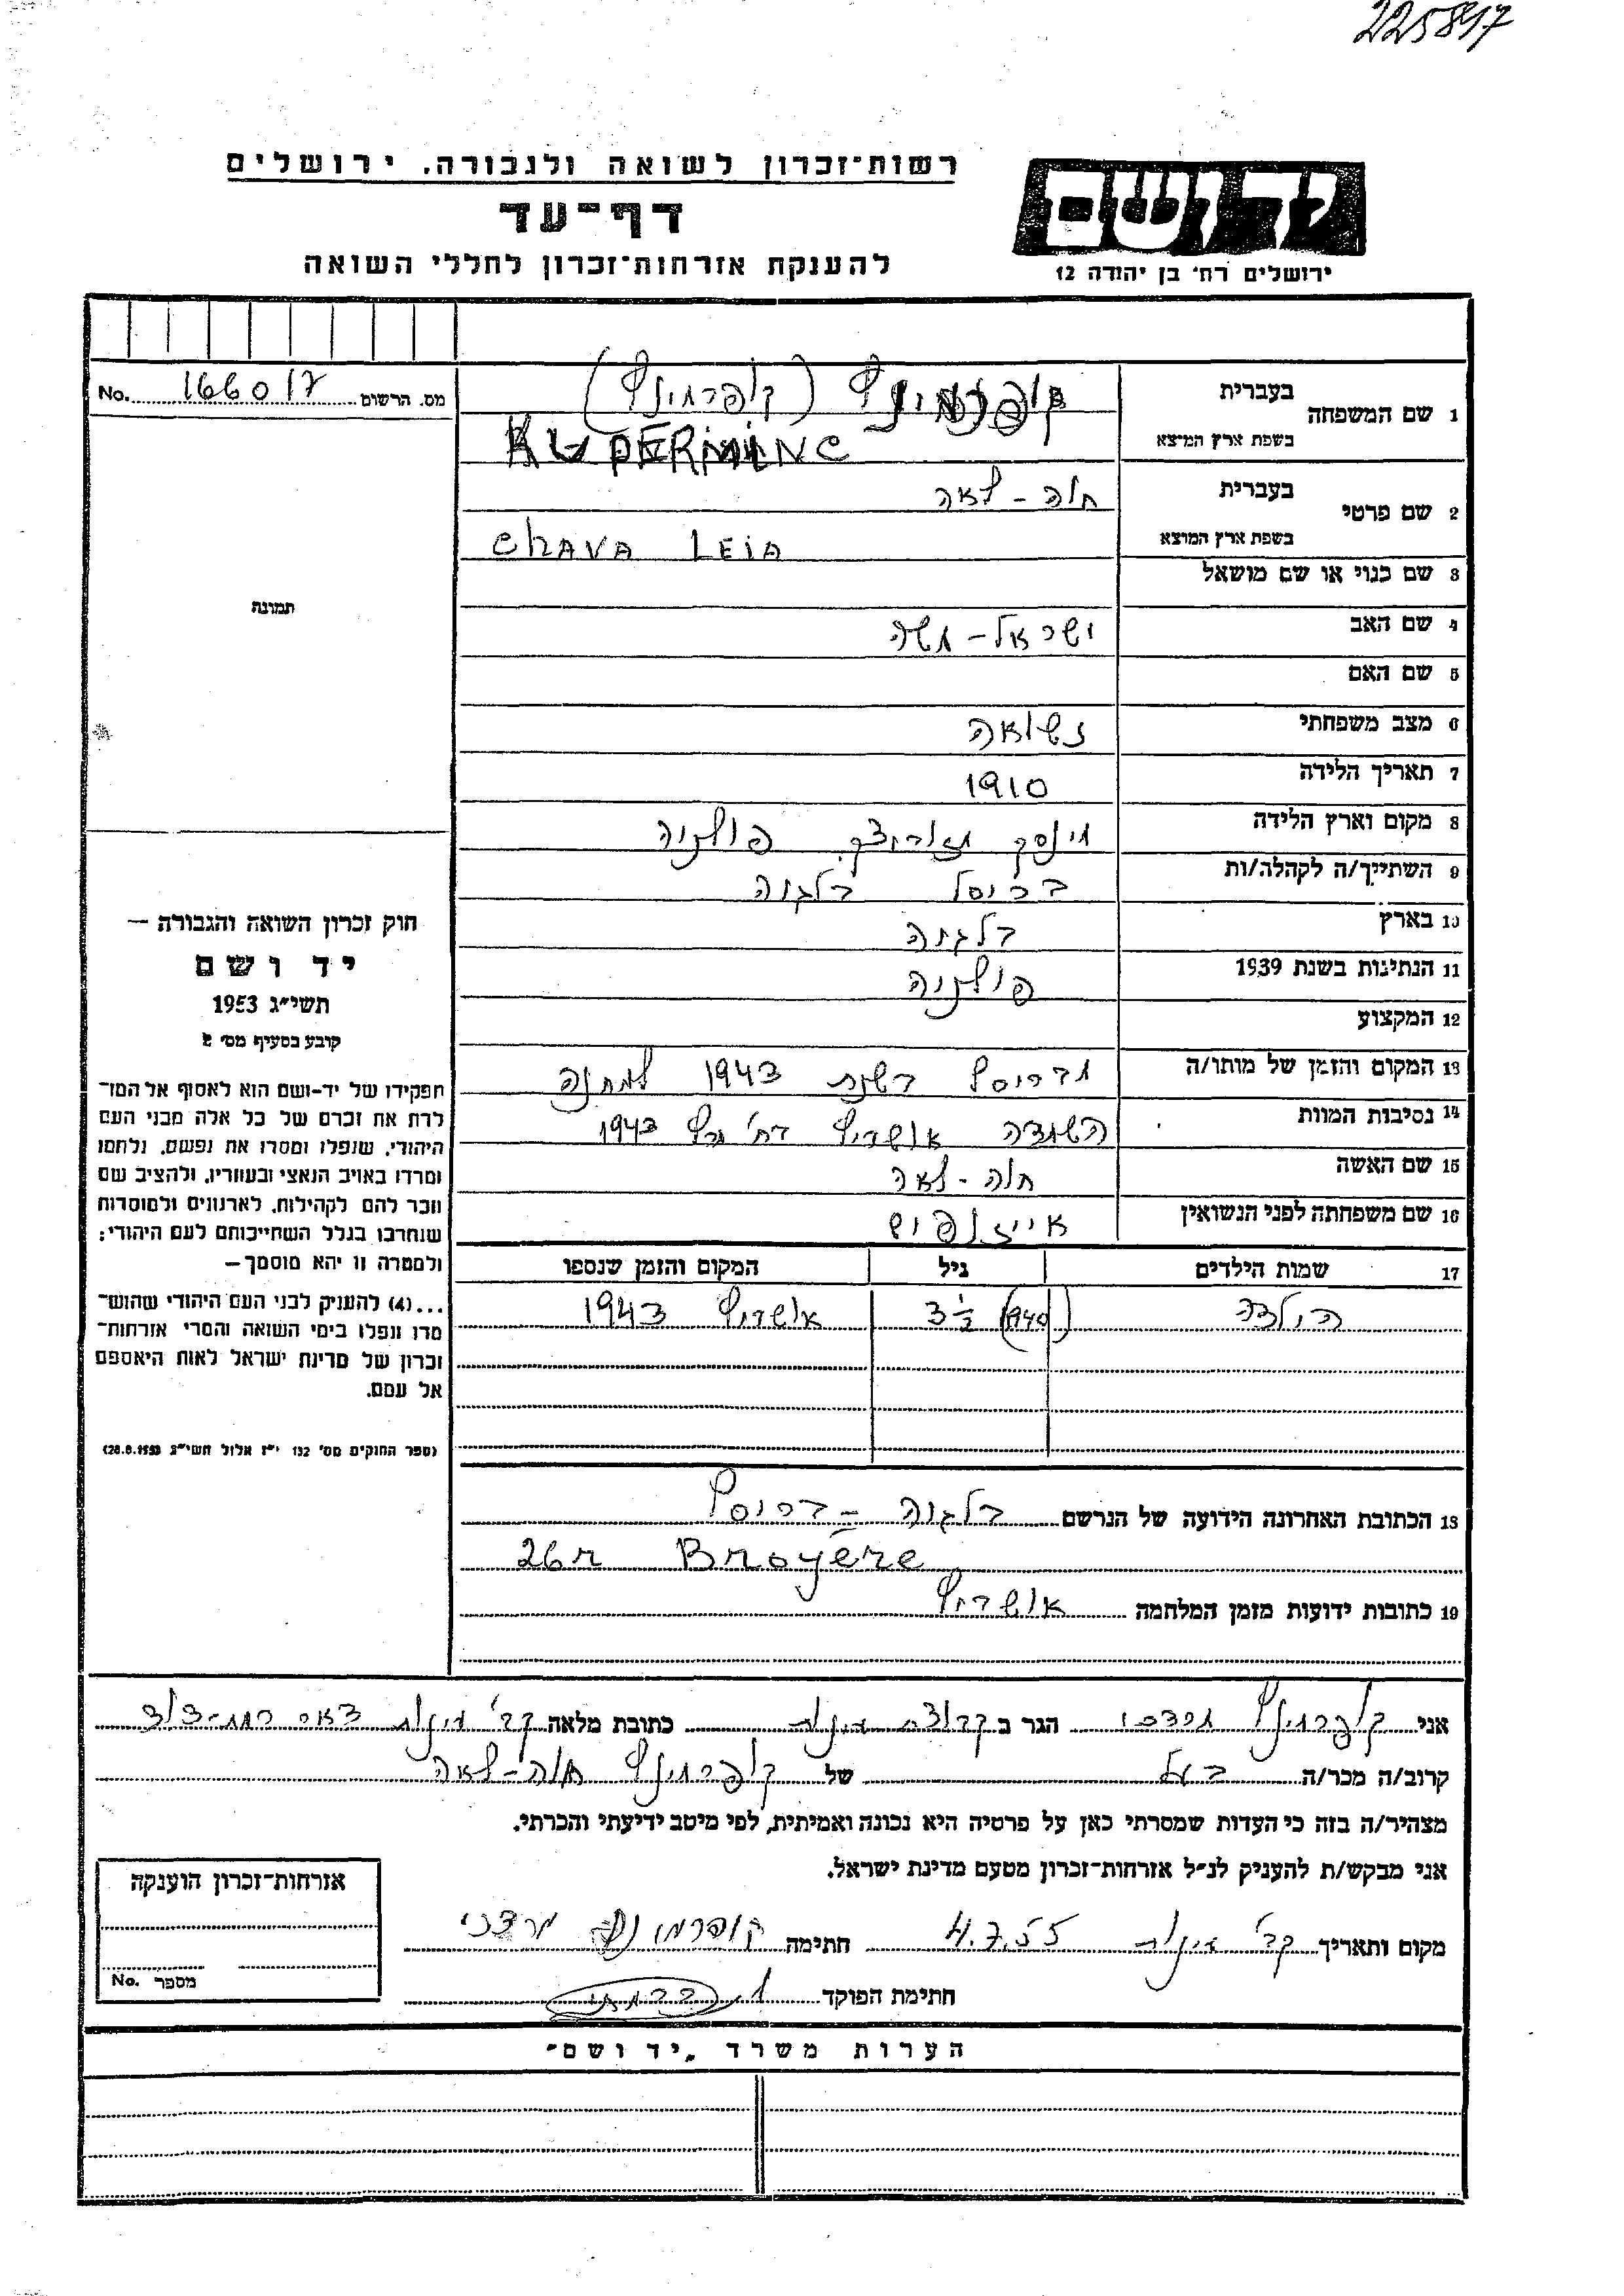 225897
רשות־זכרון לשואה ולגבורה. ירושלים
דף־עד
להענקת אזרחות־זכרון לחללי השואה
יד ושם
ירושלים רח' בן יהודה 12
מס. הרשום 166017 No.
1 שם המשפחה בעברית קופרמינץ (קופרמינץ)
בשפת ארץ המוצא KUPERMINC
2 שם פרטי בעברית חוה - לאה
בשפת ארץ המוצא CHAVA LEIA
3 שם כנוי או שם מושאל
4 שם האב ישראל - משה
5 שם האם
6 מצב משפחתי נשואה
7 תאריך הלידה 1910
8 מקום וארץ הלידה מינסק מזובייצק פולניה
9 השתייך/ה לקהלה/ות בריסל בלגיה
10 בארץ בלגיה
11 הנתינות בשנת 1939 פולניה
12 המקצוע
13 המקום והזמן של מותו/ה מבריסל בשנת 1943 למחנה
14 נסיבות המוות השמדה אושויץ 1943
15 שם האשה חוה - לאה
16 שם משפחתה לפני הנשואין
17 שמות הילדים גיל המקום והזמן שנספו
(1940) 3 אושויץ 1943
18 הכתובת האחרונה הידועה של הנרשם בלגיה - בריסל
26 r Broyère
19 כתובות ידועות מזמן המלחמה אושויץ
תמונה
חוק זכרון השואה והגבורה —
יד ושם
תשי״ג 1953
קובע בסעיף מס' 2
תפקידו של יד-ושם הוא לאסוף אל המו־
לדת את זכרם של כל אלה מבני העם
היהודי, שנפלו ומסרו את נפשם, נלחמו
ומרדו באויב הנאצי ובעוזריו, ולהציב שם
וזכר להם לקהילות, לארגונים ולמוסדות
שנחרבו בגלל השתייכותם לעם היהודי;
ולמטרה זו יהא מוסמך —
...(4) להעניק לבני העם היהודי שהוש־
מדו ונפלו בימי השואה והמרי אזרחות־
זכרון של מדינת ישראל לאות היאספם
אל עמם.
(ספר החוקים מס' 132 י״ז אלול תשי״ג 28.8.1953)
אני קופרמינץ מרדכי הגר ב קבוצת אילת כתובת מלאה קב' אילת דאר
קרוב/ה מכר/ה בעל של קופרמינץ חוה - לאה
מצהיר/ה בזה כי העדות שמסרתי כאן על פרטיה היא נכונה ואמיתית, לפי מיטב ידיעתי והכרתי.
אני מבקש/ת להעניק לנ״ל אזרחות־זכרון מטעם מדינת ישראל.
מקום ותאריך קב' אילת 4.7.55 חתימה קופרמינץ מרדכי
חתימת הפוקד
אזרחות־זכרון הוענקה
מספר No.
הערות משרד „יד ושם״